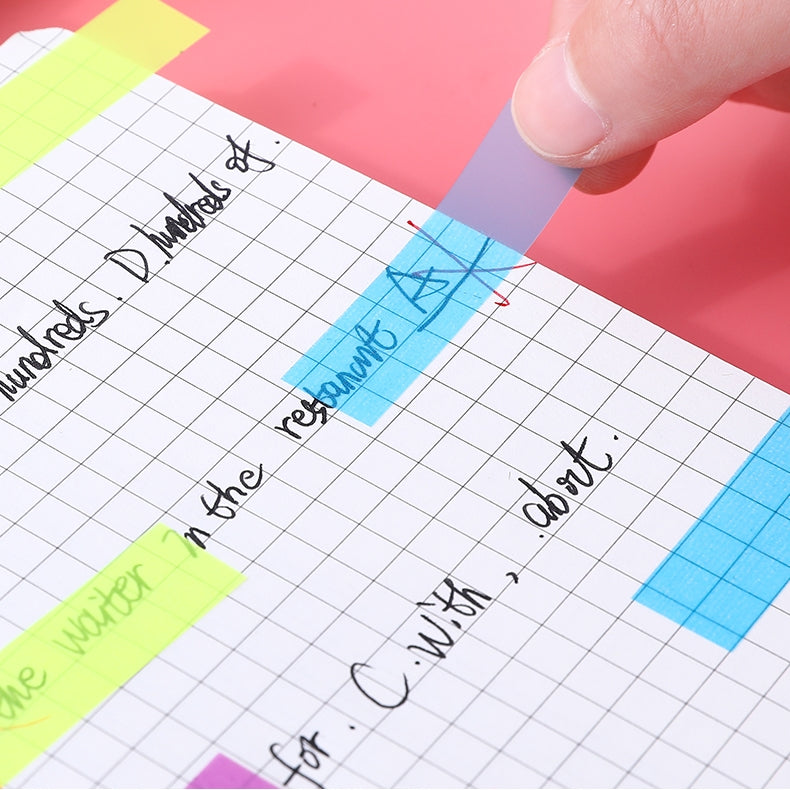 hundreds. D hundreds of.
the waiter in the restaurant As
for. C. With, . about.